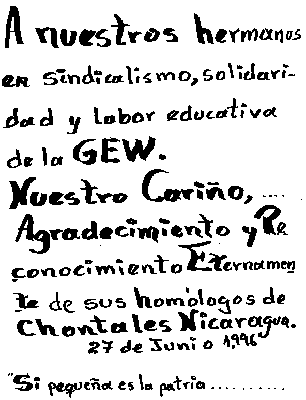 A nuestros hermanos
en sindicalismo, solidari-
dad y labor educativa
de la GEW.
Nuestro Cariño, ....
Agradecimiento y Re
conocimiento Eternamen
te de sus homólogos de
Chontales Nicaragua.
27 de Junio 1996
"Si pequeña es la patria ..........